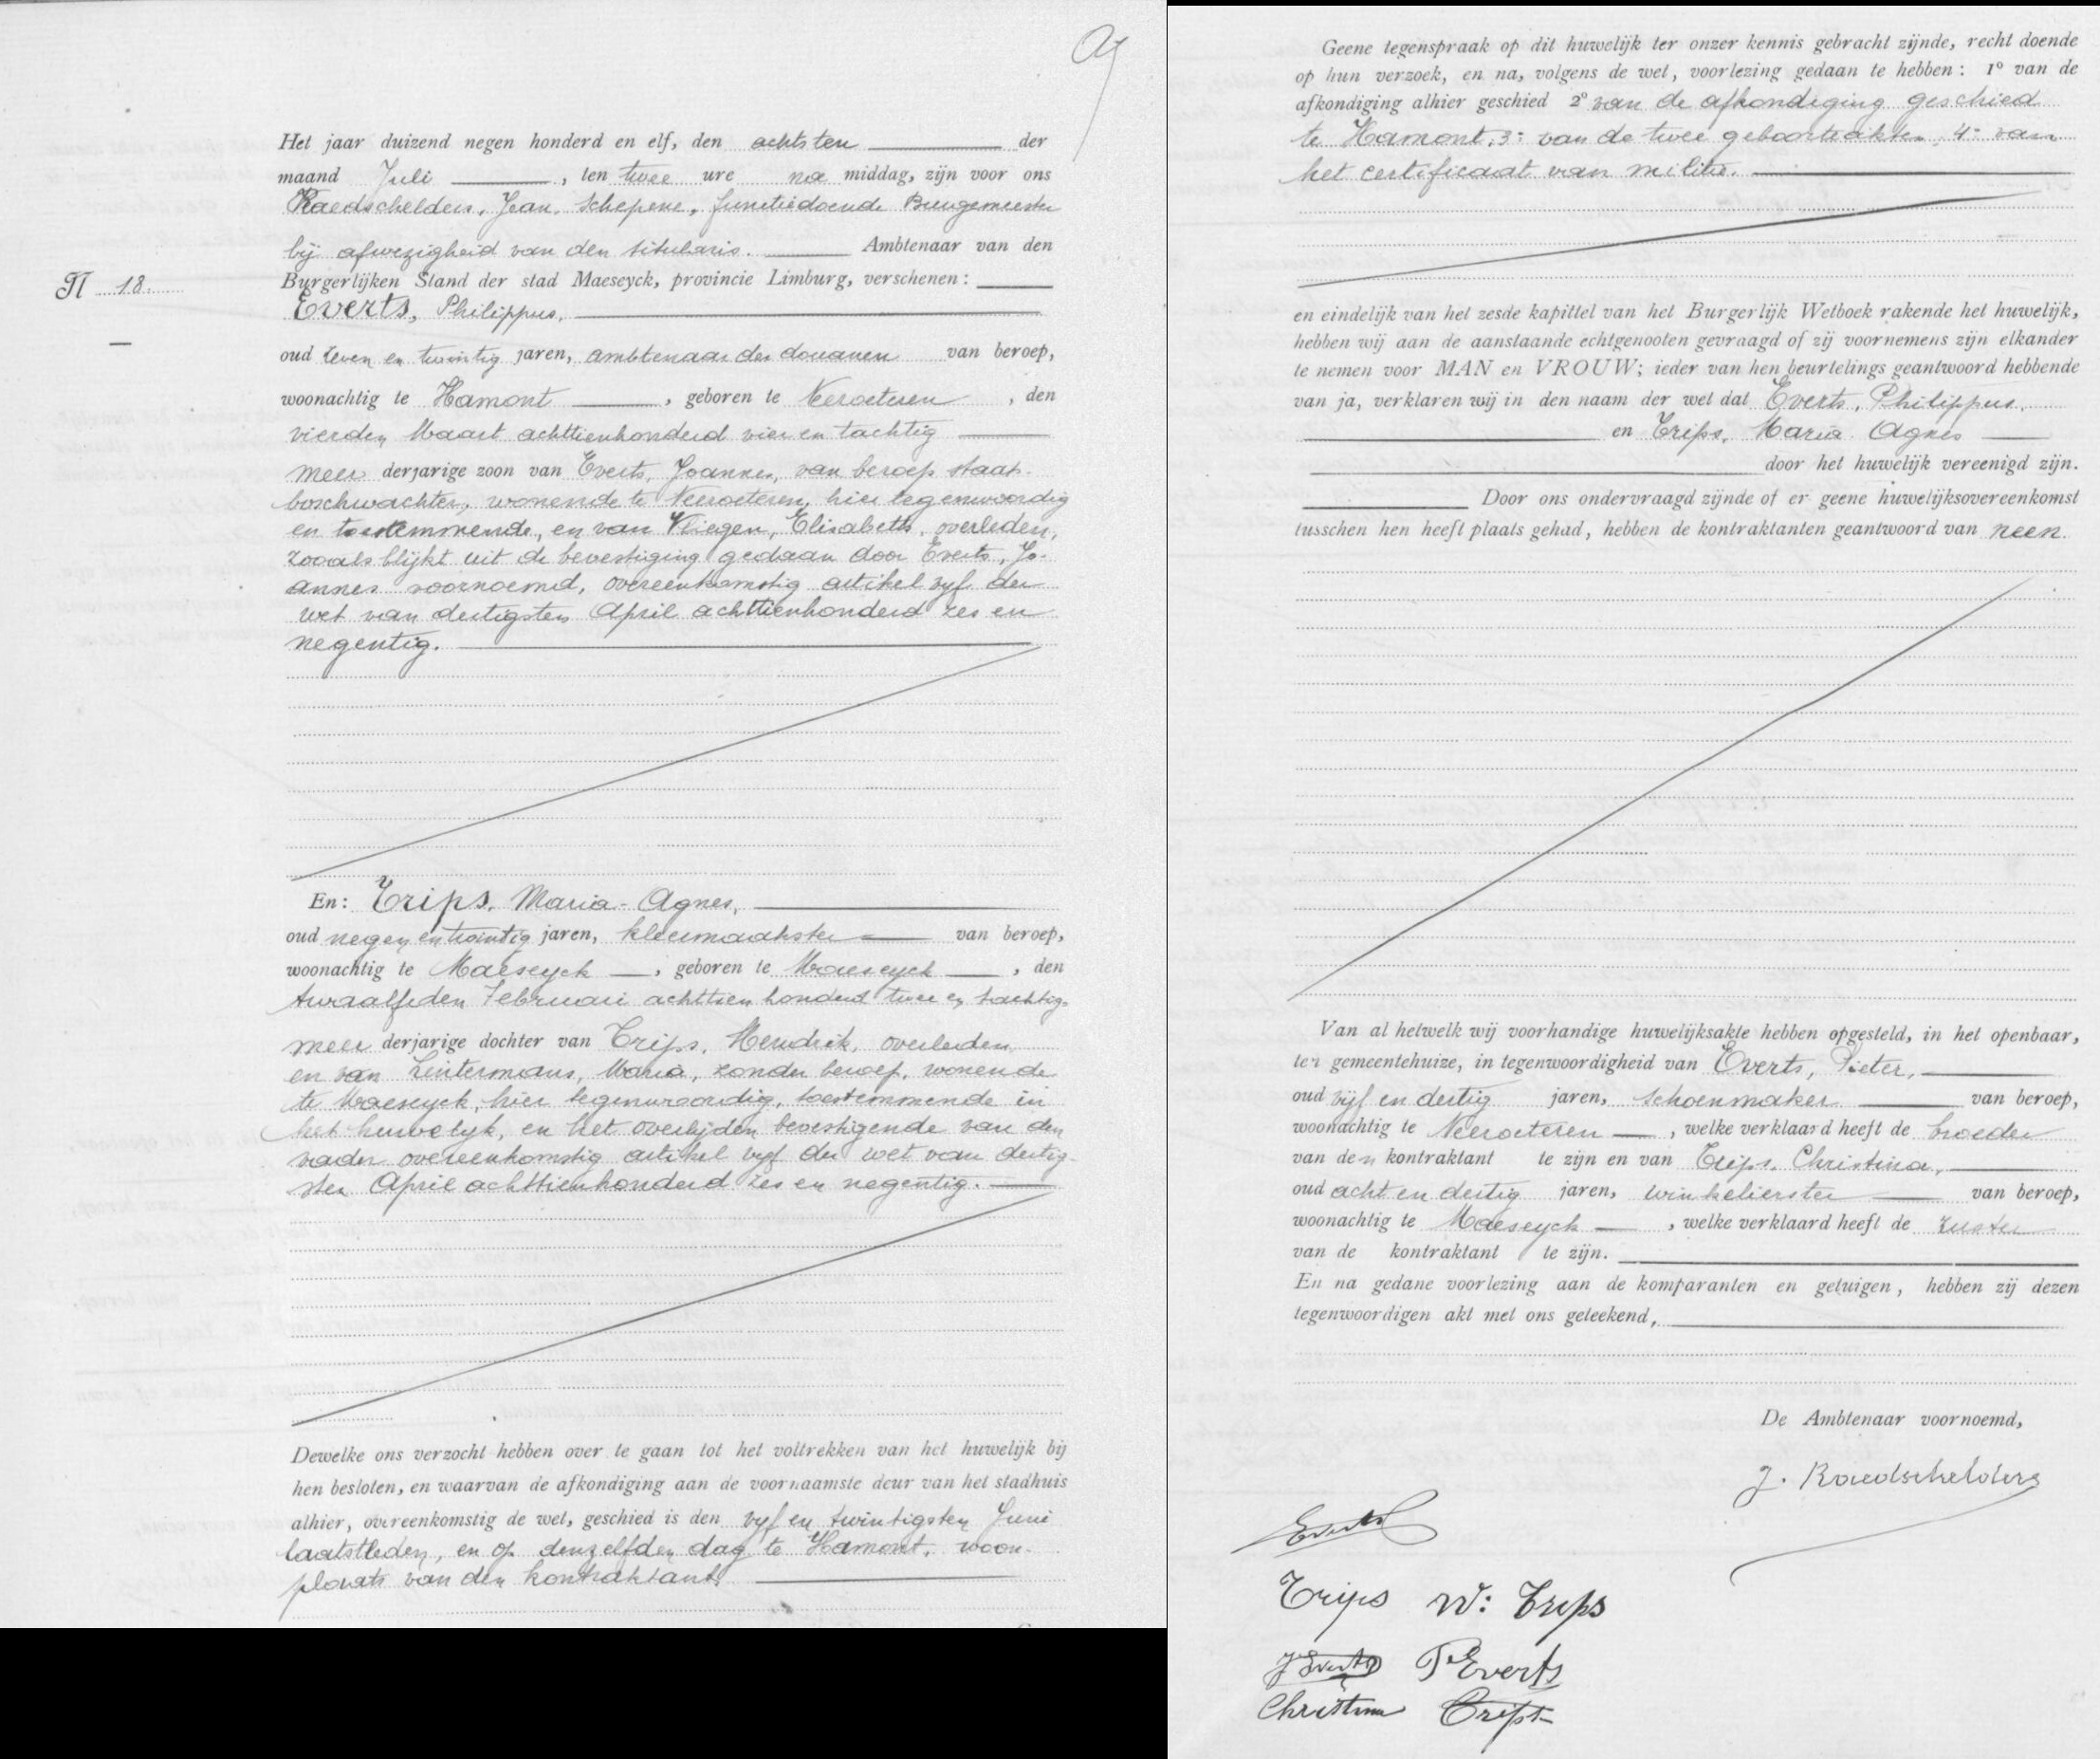 Het jaar duizend negen honderd en elf, den achtsten der
maand Juli, ten twee ure na middag, zijn voor ons
Raedschelders, Jean, Schepene, functiedoende Burgemeester
bij afwezigheid van den titularis. Ambtenaar van den
Burgerlijken Stand der stad Maeseyck, provincie Limburg, verschenen:
N 18.
Everts, Philippus,
oud zeven en twintig jaren, ambtenaar der douanen van beroep,
woonachtig te Hamont, geboren te Neeroeteren, den
vierden Maart achttienhonderd vier en tachtig
meer derjarige zoon van Everts, Joannes, van beroep staat-
boschwachter, wonende te Neeroeteren, hier tegenwoordig
en toestemmende, en van Vliegen, Elisabeth, overleden,
zooals blijkt uit de bevestiging gedaan door Everts, Jo-
annes voornoemd, overeenkomstig artikel vyf der
wet van dertigsten April achttienhonderd zes en
negentig.
En: Trips, Maria-Agnes,
oud negen en twintig jaren, kleermaakster van beroep,
woonachtig te Maeseyck, geboren te Maeseyck, den
twaalfden Februari achttien honderd twee en tachtig
meer derjarige dochter van Trips, Hendrik, overleden
en van Lintermans, Maria, zonder beroep, wonende
te Maeseyck, hier tegenwoordig, toestemmende in
het huwelyk, en het overlijden bevestigende van den
vader overeenkomstig artikel vyf der wet van dertig-
sten April achttienhonderd zes en negentig.
Dewelke ons verzocht hebben over te gaan tot het voltrekken van het huwelijk bij
hen besloten, en waarvan de afkondiging aan de voornaamste deur van het stadhuis
alhier, overeenkomstig de wet, geschied is den vyf en twintigsten Juni
laatstleden, en op denzelfden dag te Hamont, woon-
plaats van den kontraktant.
Geene tegenspraak op dit huwelijk ter onzer kennis gebracht zijnde, recht doende
op hun verzoek, en na, volgens de wet, voorlezing gedaan te hebben: 1° van de
afkondiging alhier geschied 2° van de afkondiging geschied
te Hamont, 3° van de twee geboorteakten, 4° van
het certificaat van militie.
en eindelijk van het zesde kapittel van het Burgerlijk Wetboek rakende het huwelijk,
hebben wij aan de aanstaande echtgenooten gevraagd of zij voornemens zijn elkander
te nemen voor MAN en VROUW; ieder van hen beurtelings geantwoord hebbende
van ja, verklaren wij in den naam der wet dat Everts, Philippus,
en Trips, Maria Agnes
door het huwelijk vereenigd zijn.
Door ons ondervraagd zijnde of er geene huwelijksovereenkomst
tusschen hen heeft plaats gehad, hebben de kontraktanten geantwoord van neen.
Van al hetwelk wij voorhandige huwelijksakte hebben opgesteld, in het openbaar,
ter gemeentehuize, in tegenwoordigheid van Everts, Pieter,
oud vijf en dertig jaren, schoenmaker van beroep,
woonachtig te Neeroeteren, welke verklaard heeft de broeder
van den kontraktant te zijn en van Trips, Christina,
oud acht en dertig jaren, winkelierster van beroep,
woonachtig te Maeseyck, welke verklaard heeft de zuster
van de kontraktant te zijn.
En na gedane voorlezing aan de komparanten en getuigen, hebben zij dezen
tegenwoordigen akt met ons geteekend,
De Ambtenaar voornoemd,
J. Raedschelders
Everts
Trips W: Trips
J Everts P Everts
Christina Trips